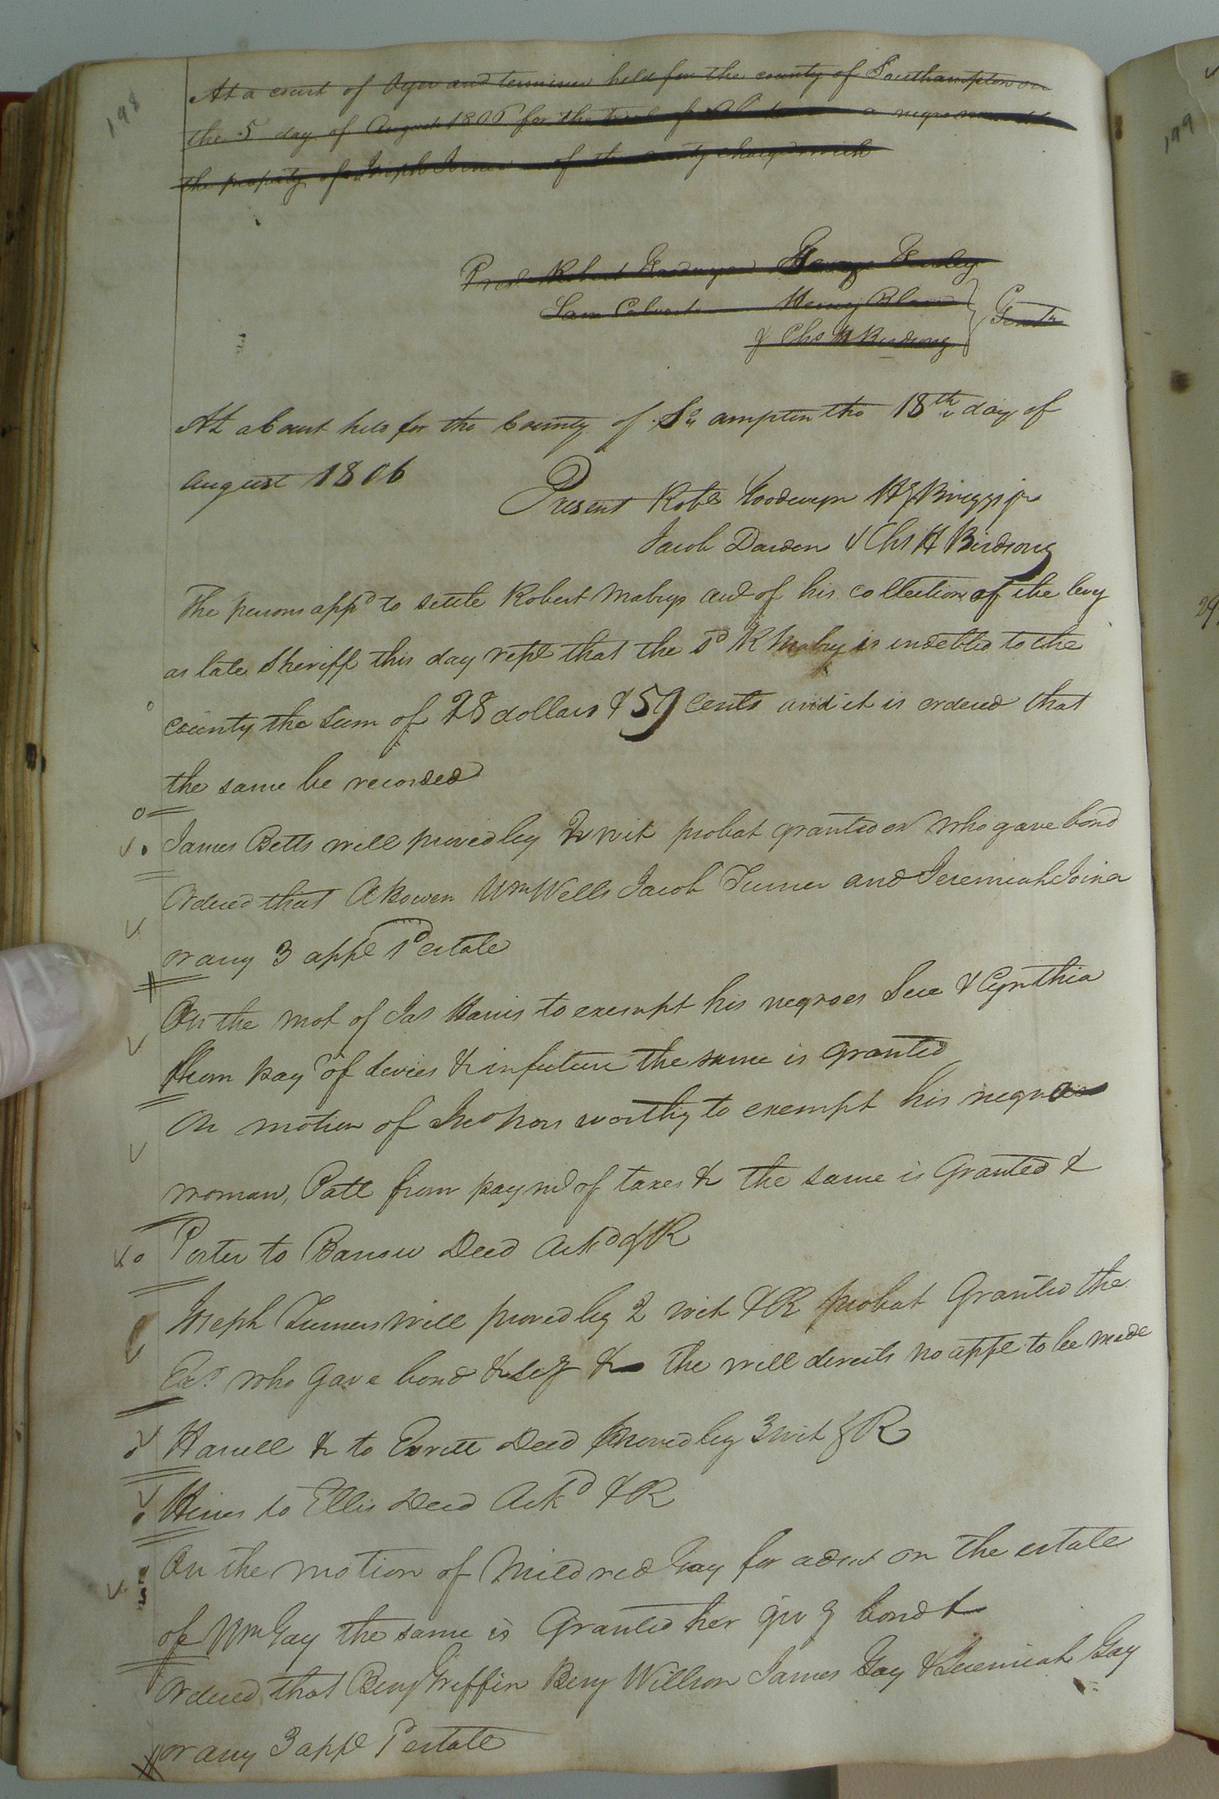 198
At a court of Oyer and terminer held for the county of Southampton on
the 5 day of August 1806 for the trial of a negro
the property of Joseph of the county charged with
Prest Robert Goodwyn George Gurley
Sam Calvert Henry Blow
& Chs H Birdsong Gentn
199
At a Court held for the County of So ampton the 18th day of
August 1806
Present Robt Goodwyn H Briggs jr
Jacob Darden & Chs H Birdsong
The persons appd to settle Robert Mabrys acct of his collection of the levy
as late Sheriff this day rept that the sd R Mabry is indebted to the
29
county the sum of 28 dollars & 59 cents and it is ordered that
the same be recorded
James Betts will proved by 2 wit probat granted ex who gave bond
Ordered that A Bowen Wm Wells Jacob Turner and Jeremiah Joiner
or any 3 appe sd estate
On the mot of Jas Harris to exempt his negroes Sue & Cynthia
from pay of levies & in future the same is granted
On motion of Jno Norsworthy to exempt his negro
woman, Patt from paymt of taxes & the same is Granted &
Porter to Barrow Deed Ackd & R
Joseph Turners will proved by 2 wit & R probat Granted the
Exr who gave bond & secy & the will directs no appt to be made
Harrell & to Everett Deed proved by 3 wit & R
Hines to Ellis Deed Ackd & R
On the motion of Mildred Gay for admt on the estate
of Wm Gay the same is Granted her giv g bond &
Ordered that Benj Griffin Benj Willson James Gay & Jeremiah Gay
or any 3 appe sd estate